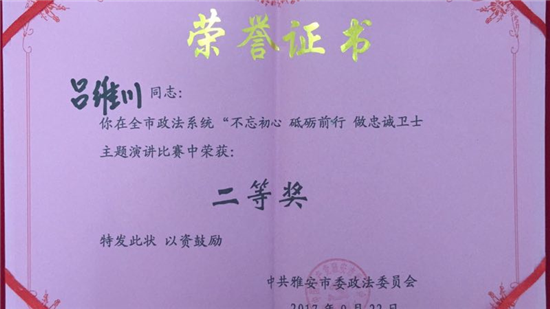 荣誉证书
吕维川同志：
你在全市政法系统“不忘初心 砥砺前行 做忠诚卫士
主题演讲比赛中荣获：
二等奖
特发此状 以资鼓励
中共雅安市委政法委员会
2017年9月22日